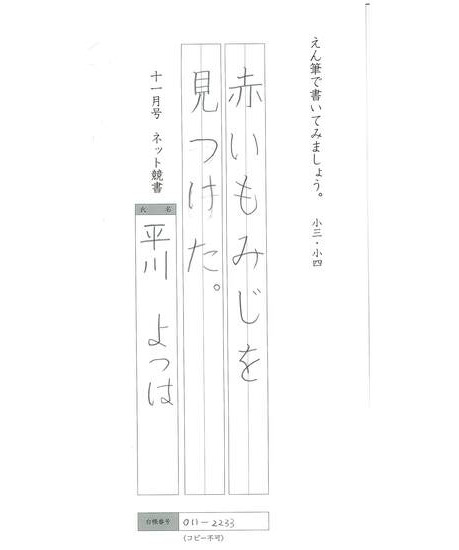 えん筆で書いてみましょう。 小三・小四
赤いもみじを
見つけた。
十一月号 ネット競書
氏 名
平川 よつは
台帳番号 011-2233
(コピー不可)